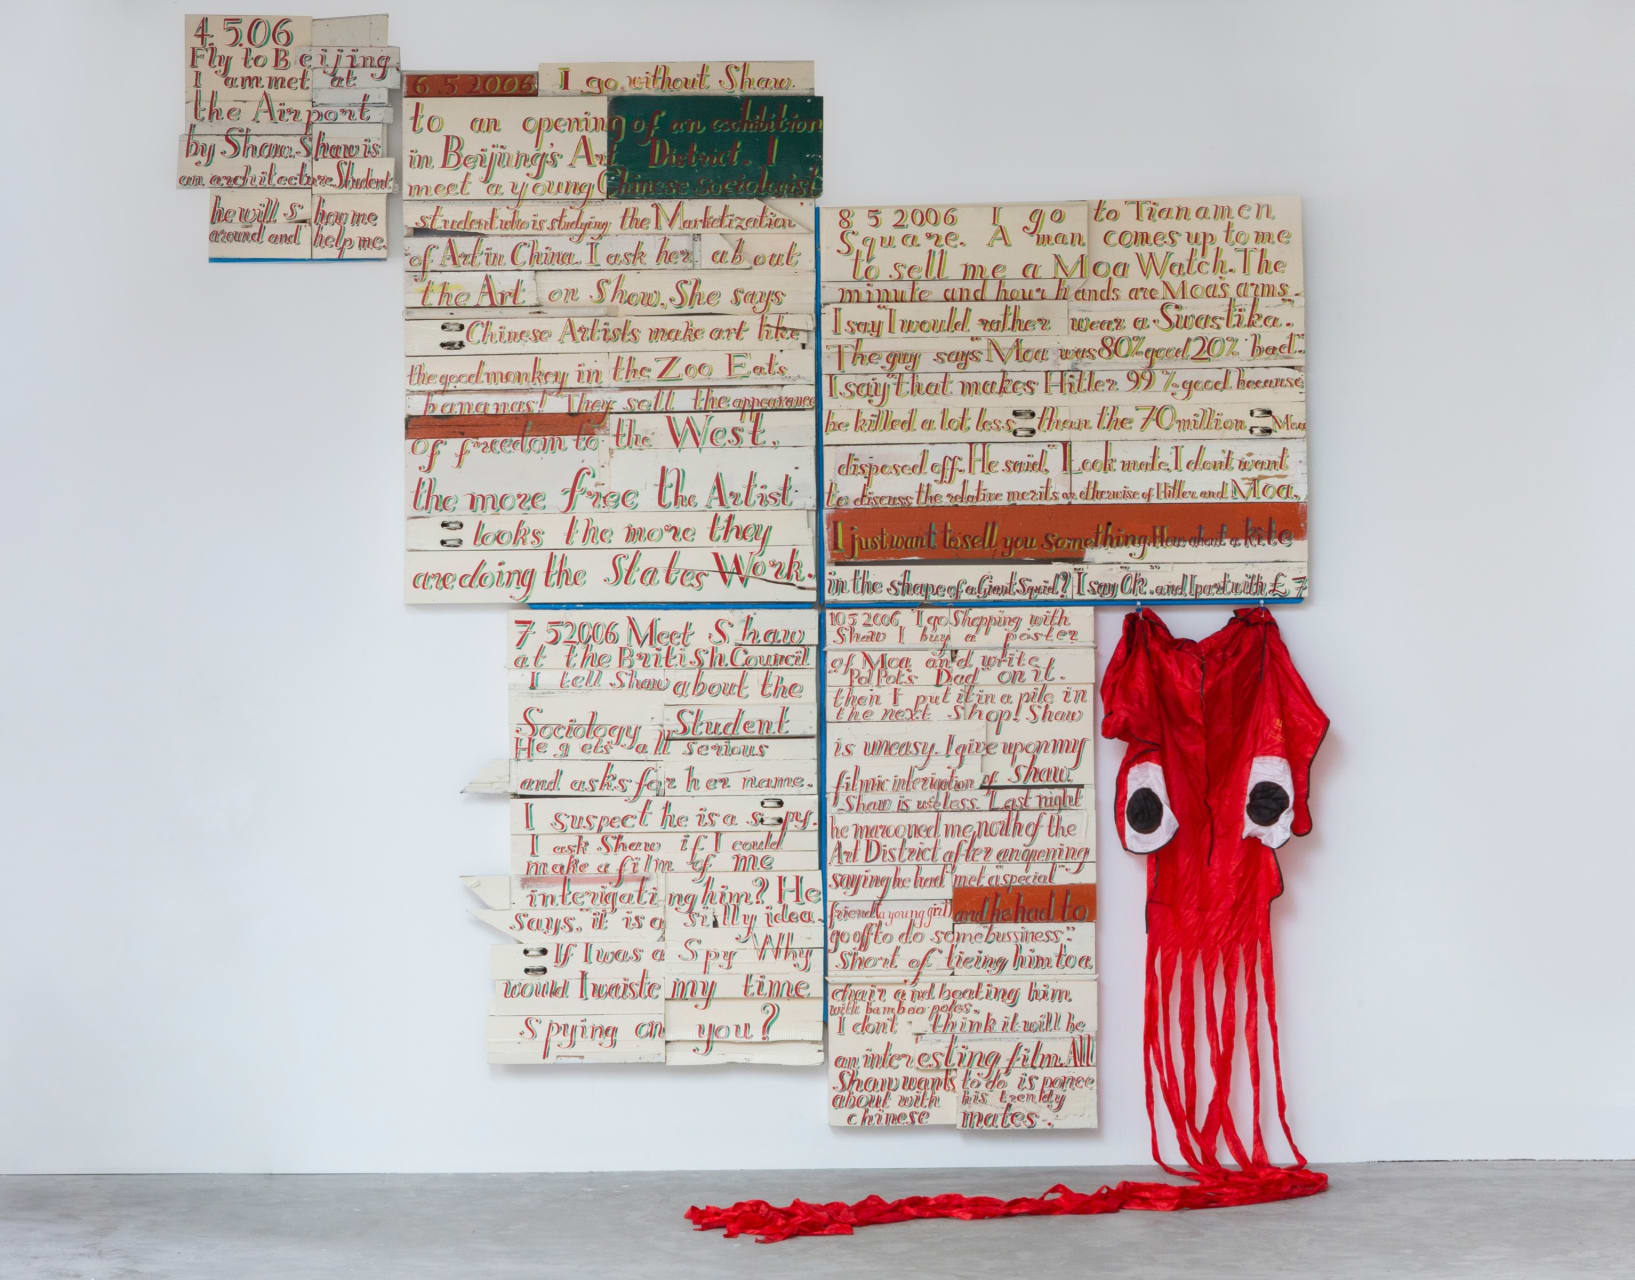 4.5.06
Fly to Beijing
I am met at
the Airport
by Shaw. Shaw is
an architecture Student
he will show me
around and help me.
6 5 2006 I go without Shaw.
to an opening of an exhibition
in Beijing's Art District. I
meet a young Chinese sociologist
student who is studying the Marketization
of Art in China. I ask her about
the Art on Show. She says
Chinese Artists make art like
the good monkey in the Zoo Eats
bananas! They sell the appearance
of freedom to the West.
the more free the Artist
looks the more they
are doing the States Work.
7 5 2006 Meet Shaw
at the British Council
I tell Shaw about the
Sociology Student
He gets all serious
and asks for her name.
I suspect he is a spy.
I ask Shaw if I could
make a film of me
interigating him? He
says, it is a silly idea.
If I was a Spy Why
would I waiste my time
spying on you?
8 5 2006 I go to Tianamen
Square. A man comes up to me
to sell me a Moa Watch. The
minute and hour hands are Moa's arms.
I say "I would rather wear a Swastika."
The guy says "Moa was 80% good 20% bad".
I say "That makes Hitler 99% good because
he killed a lot less than the 70 million Moa
disposed off. He said, "Look mate, I don't want
to discuss the relative merits or otherwise of Hitler and Moa,
I just want to sell you something. How about a kite
in the shape of a Giant Squid?" I say "Ok". and I part with £ 7
10 5 2006 I go Shopping with
Shaw I buy a poster
of Moa and write
"Pol Pots Dad" on it.
then I put it in a pile in
the next Shop! Shaw
is uneasy. I give up on my
filmic interigation of Shaw.
Shaw is useless. Last night
he marooned me north of the
Art District after an opening
saying he had "met a special
friend (a young girl) and he had to
go off to do some bussiness".
Short of tieing him to a
chair and beating him
with bamboo poles,
I don't think it will be
an interesting film. All
Shaw wants to do is ponce
about with his trendy
chinese mates.